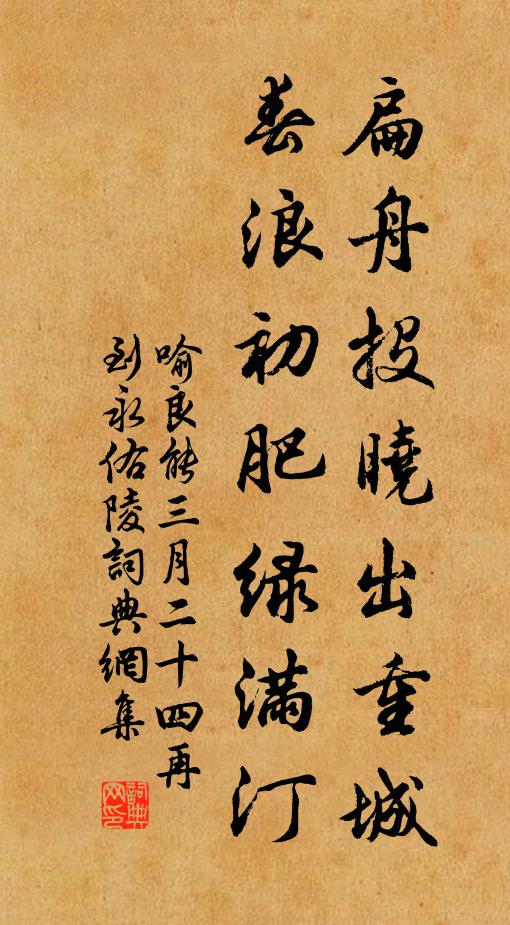 扁舟投曉出重城
春浪初肥緑滿汀
喻良能三月二十四再
到永佑陵詞典網集
詞典
网印